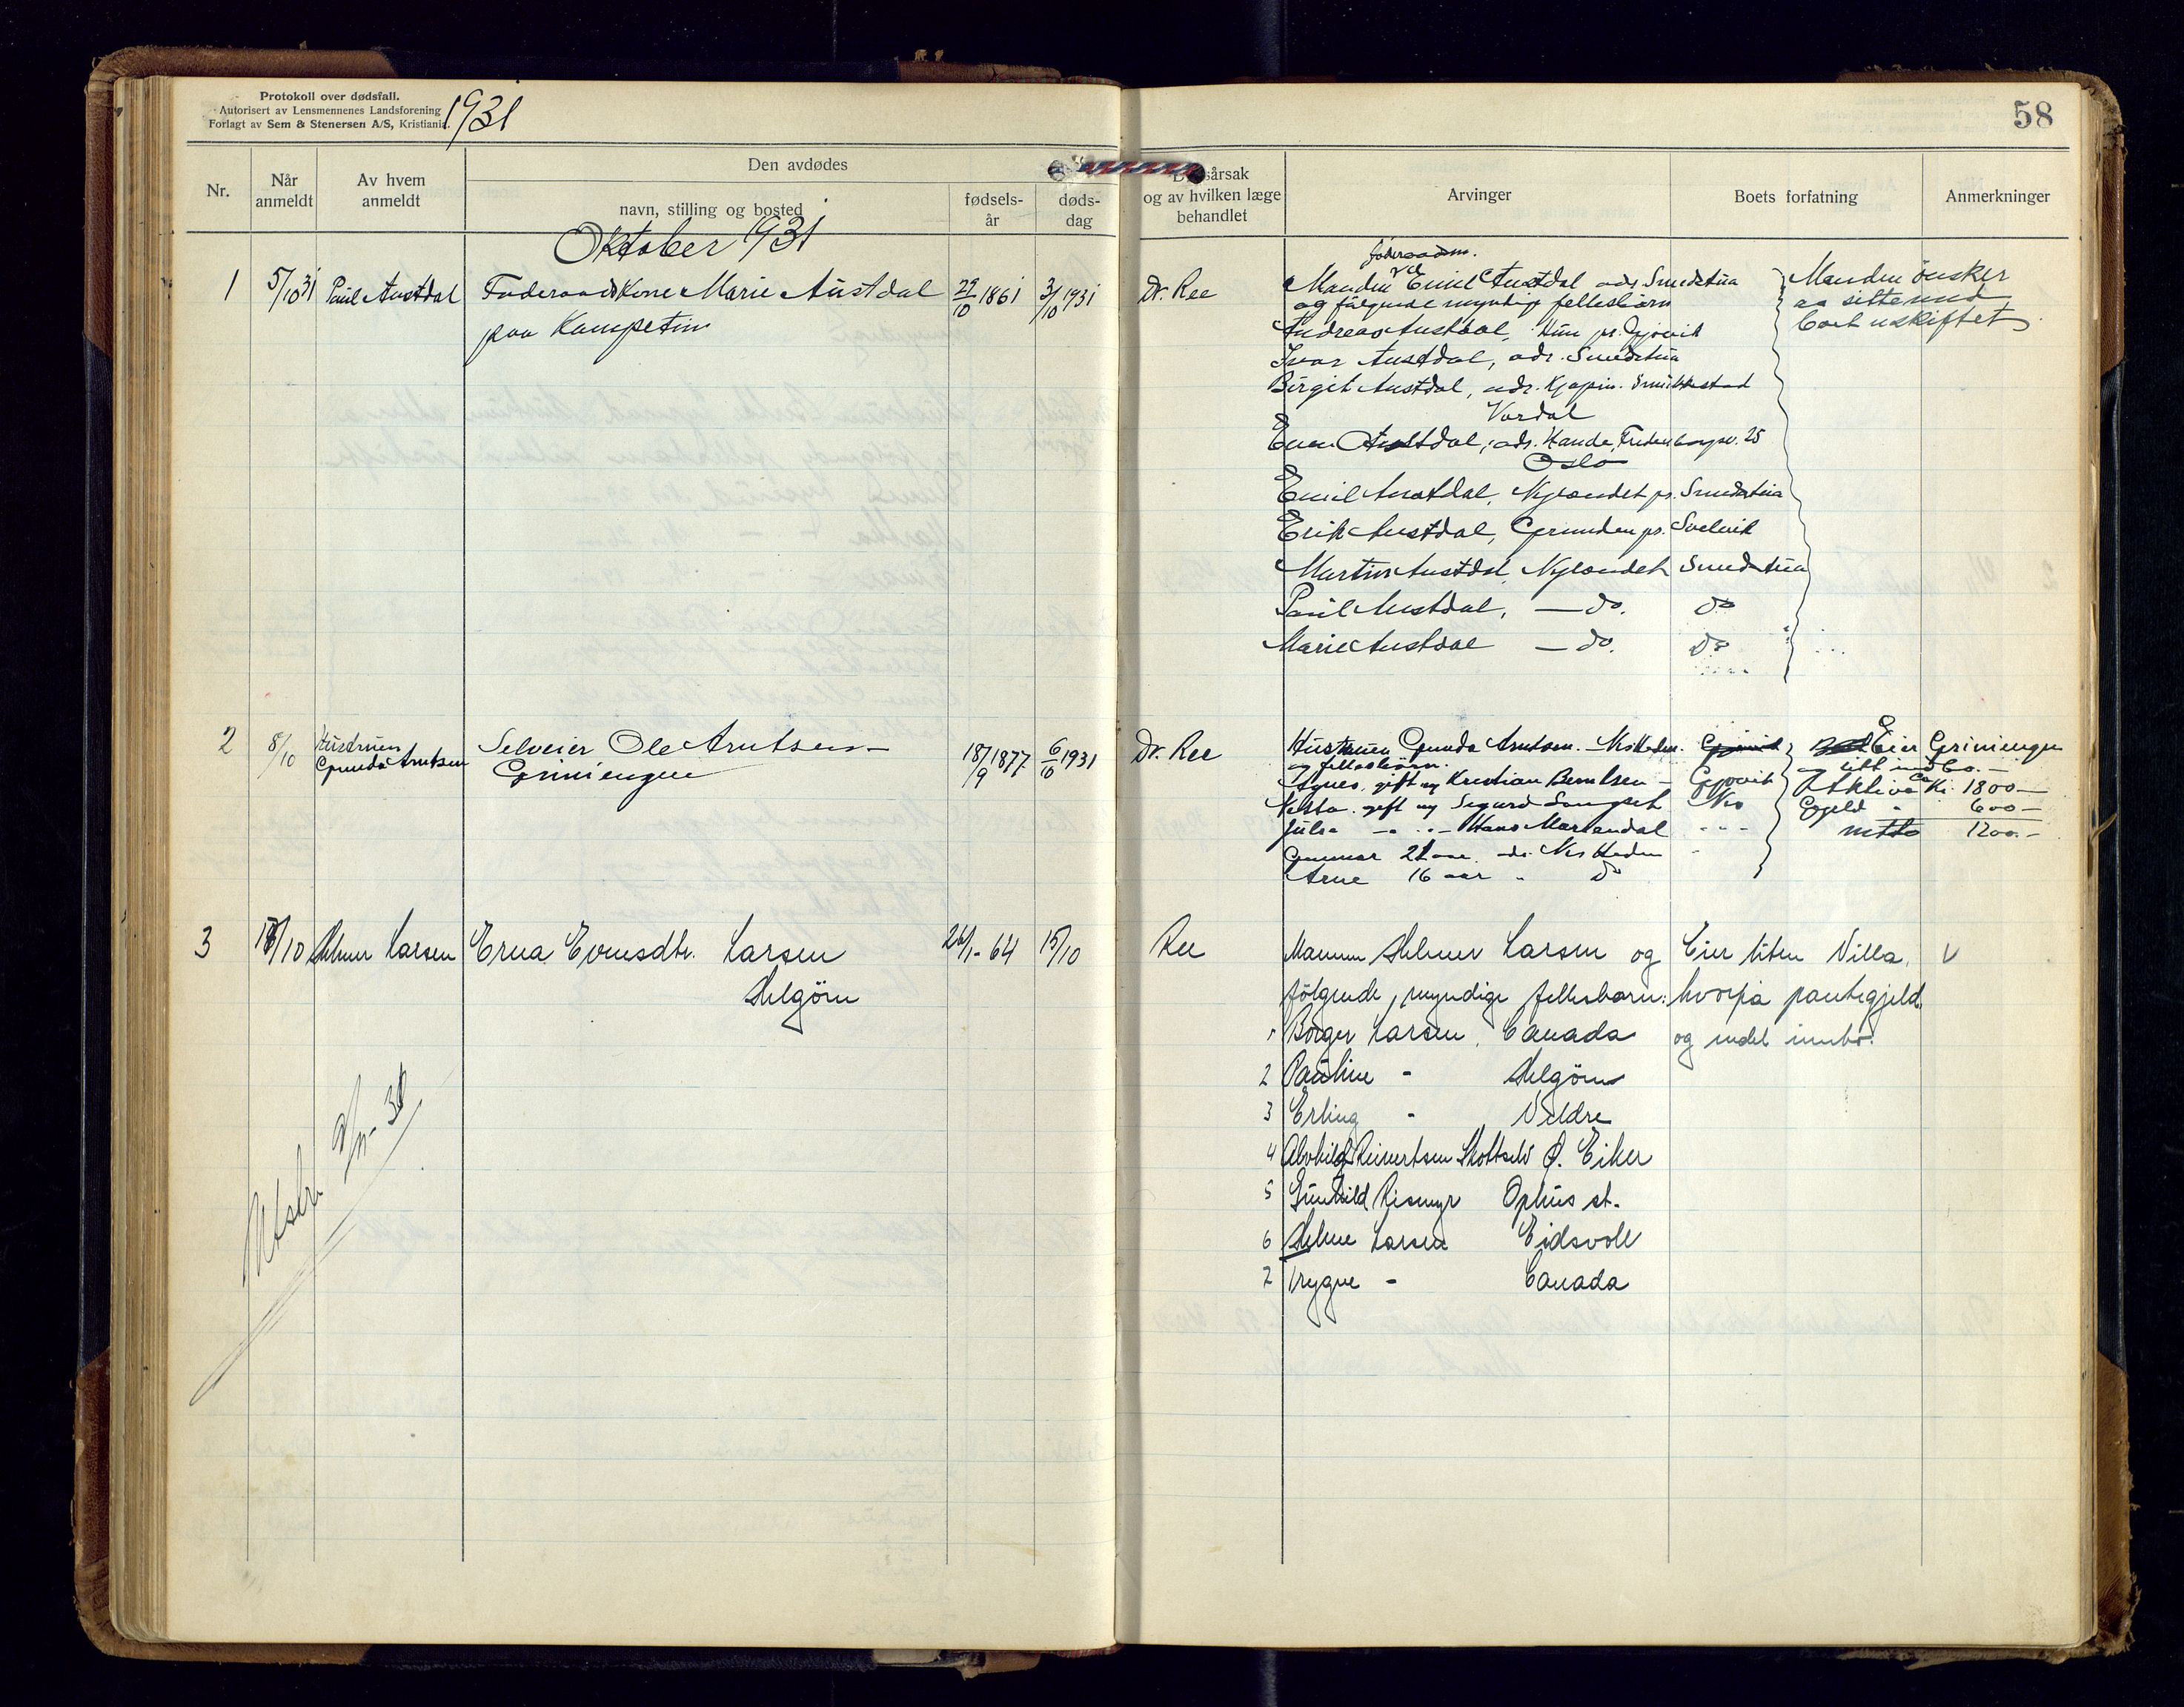 Protokoll over dødsfall.
Autorisert av Lensmennenes Landsforening
Forlagt av Sem & Stenersen A/S, Kristiania.
1931
58
Nr.
Når anmeldt
Av hvem anmeldt
Den avdødes
navn, stilling og bosted
fødsels-år
døds-dag
sårsak og av hvilken læge behandlet
Arvinger
Boets forfatning
Anmerkninger
Oktober 1931
1 5/10 31 Paul Austdal Foderaadskone Marie Austdal 29/10 1861 3/10 1931 Dr. Ree
paa Kampetin
foderaadsm.
Manden Emil Austdal adr. Smedstua
og følgende myndig fellesbarn
Andreas Austdal, Hun pr. Gjøvik
Ivar Austdal, adr. Smedstua
Birgit Austdal, adr. Kjøpm. Smikkestad
Vardal
Even Austdal, adr. Hande, Fredensborgv. 25
Oslo
Emil Austdal, Nylandet pr. Smedstua
Erik Austdal, Grunden pr. Svelvik
Martin Austdal, Nylandet Smedstua
Paul Austdal, — do. do
Marie Austdal — do. do
Manden ønsker
aa sitte med
boet uskiftet
2 8/10 Hustruen Gunda Arntsen Selveier Ole Arntsen 18/9 1877 6/10 1931 Dr. Ree
Griniengen
Hustruen Gunda Arntsen. Nes Hedm. Gjøvik
og fellesbarn.
Agnes, gift m Kristian Berntsen — Gjøvik
Vesta. gift m Sigurd Langset Nes
Julie — .. — Hans Marendal - - -
Gunnar 21 aar. adr. Nes Hedm -
Arne 16 aar " do
Eier Griniengen
og litt indbo. —
Aktiva ca Kr. 1800 —
Gjeld " 600 —
netto 1200. —
3 15/10 Helmer Larsen Erna Evensdtr. Larsen 26/1- 64 15/10 Ree
Helgøen
Mannen Helmer Larsen og
følgende, myndige fellesbarn:
1 Borger Larsen, Canada
2 Pauline - Helgøen
3 Erling - Veldre
4 Alvhild Reinertsen Skotselv Ø. Eiker
5 Gunhild Rismyr Ophus st.
6 Helene Larsen Eidsvoll
7 Trygve - Canada
Eier liten Villa, V
hvorpå pantegjeld.
og endel innbo.
Utskr.